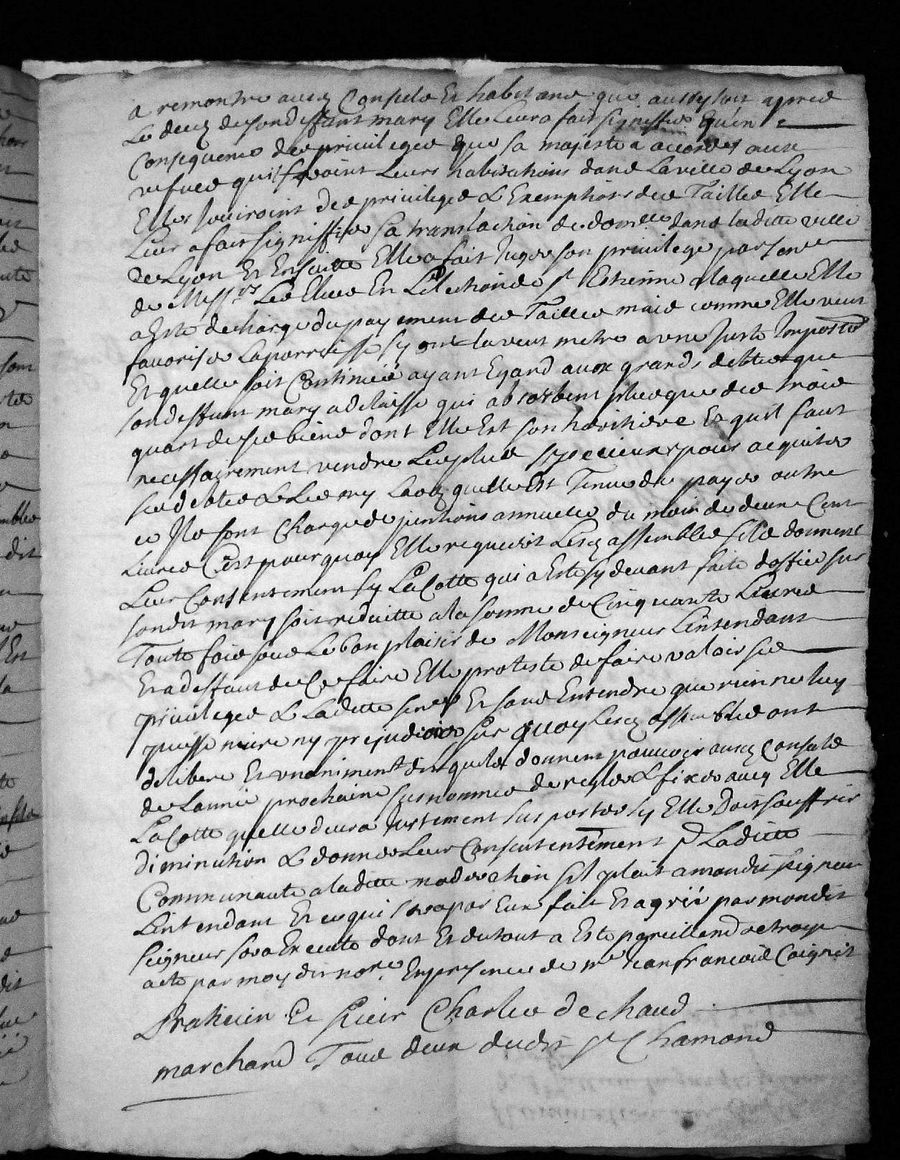 a remontre auxd Consuls Et habitans que aussytost apres
Le decez de son deffunt mary Elle Leur a fait signiffier quen
Consequence des privileges que sa majesté a accordés aux
vefves qui feroint Leurs habitations dans La ville de Lyon
Elles Jouiroint des privileges & Exemptions des Tailles Elle
Leur a fait signiffier sa translation de domille dans laditte ville
de Lyon Et Ensuitte Elle a fait Juger son privilege par sence
de Messrs Les Eleus En Lelection de st Etienne a laquelle Elle
a Esté deschargé du payement des Tailles mais comme Elle veut
favoriser La parroisse sy on la veut metre a une Juste Imposton
Et quelle soit Continuée ayant Egard aux grands debtes que
son deffunt mary a delaissé qui absorbent plus que des trois
quart de ses biens dont Elle Est son heritiere Et quil faut
necessairement vendre Les plus specieux pour acquiter
ses debtes & Les my Lods quelle Est Tenue de payer outre
ce Ils sont Chargé de pentions annuelles du moins de deux Cent
Livres Cest pourquoy Elle requiert Lesd assemblés sils donnent
Leur Consentement sy La Cotte qui a Esté sy devant faite doffice sur
sondit mary soit reduitte a la somme de Cinquante Livres
Toute fois sous Le bon plaisir de Monseigneur Lintendant
Et a deffaut de Ce faire Elle proteste de faire valoir ses
privileges & Laditte sence Et sans Entendre que rien ne luy
puisse nuire ny prejudicier sur quoy Lesd assemblés ont
delibere Et unaniment dit quils donnent pouvoir auxd Consuls
de Lannée prochaine sus nommés de regler & fixer avec Elle
La Cotte quelle devra Justement suporter sy Elle Doit souffrir
diminution & donner Leur Consentement p Laditte
Communauté a laditte moderation sil plait a mondit seigneur
Lintendant Et ce qui sera par Eux fait Et agréé par mondit
seigneur sera Executé dont Et du tout a Esté pareillemt octroyé
acte par moy dit nore En presence de me Jean francois Coignet
Praticien Et sieur Charles dechaud
marchand Tous deux dudit st Chamond